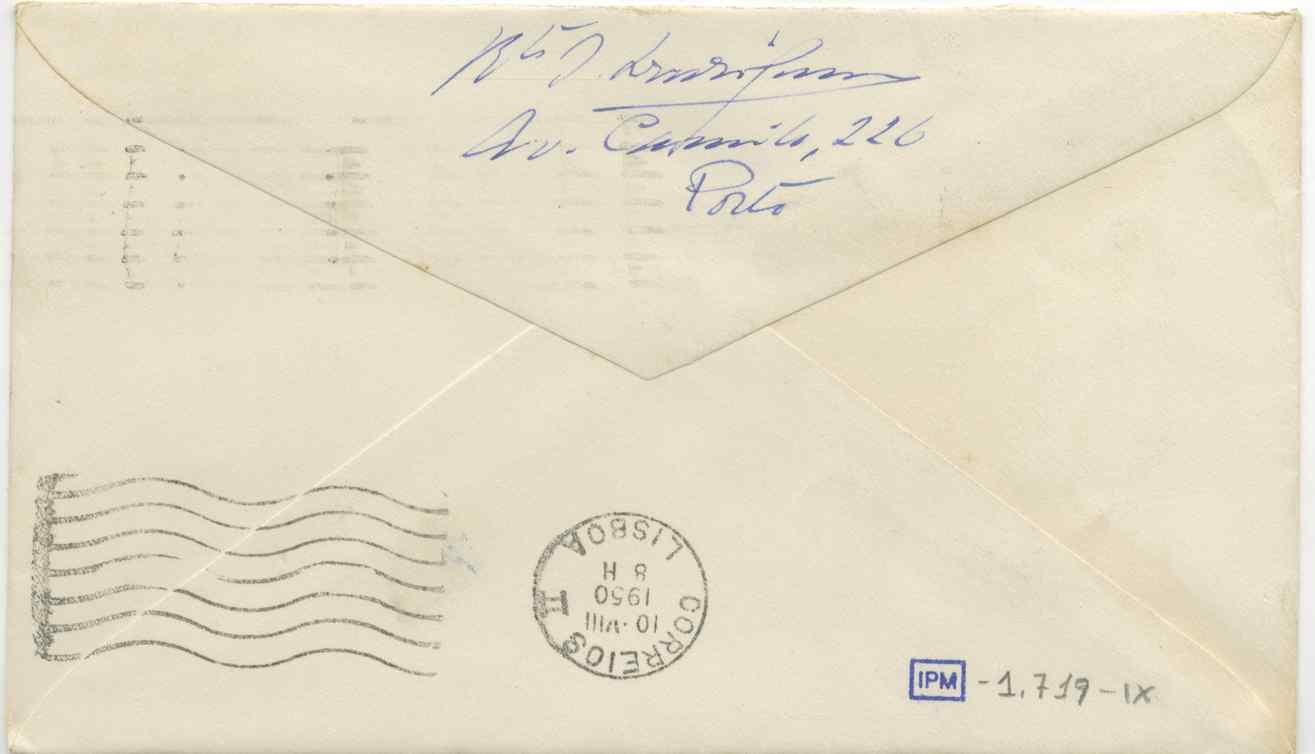 Av. Camilo, 226
Porto
CORREIOS
10·VIII
1950
8 H
LISBOA
II
IPM - 1.719-IX